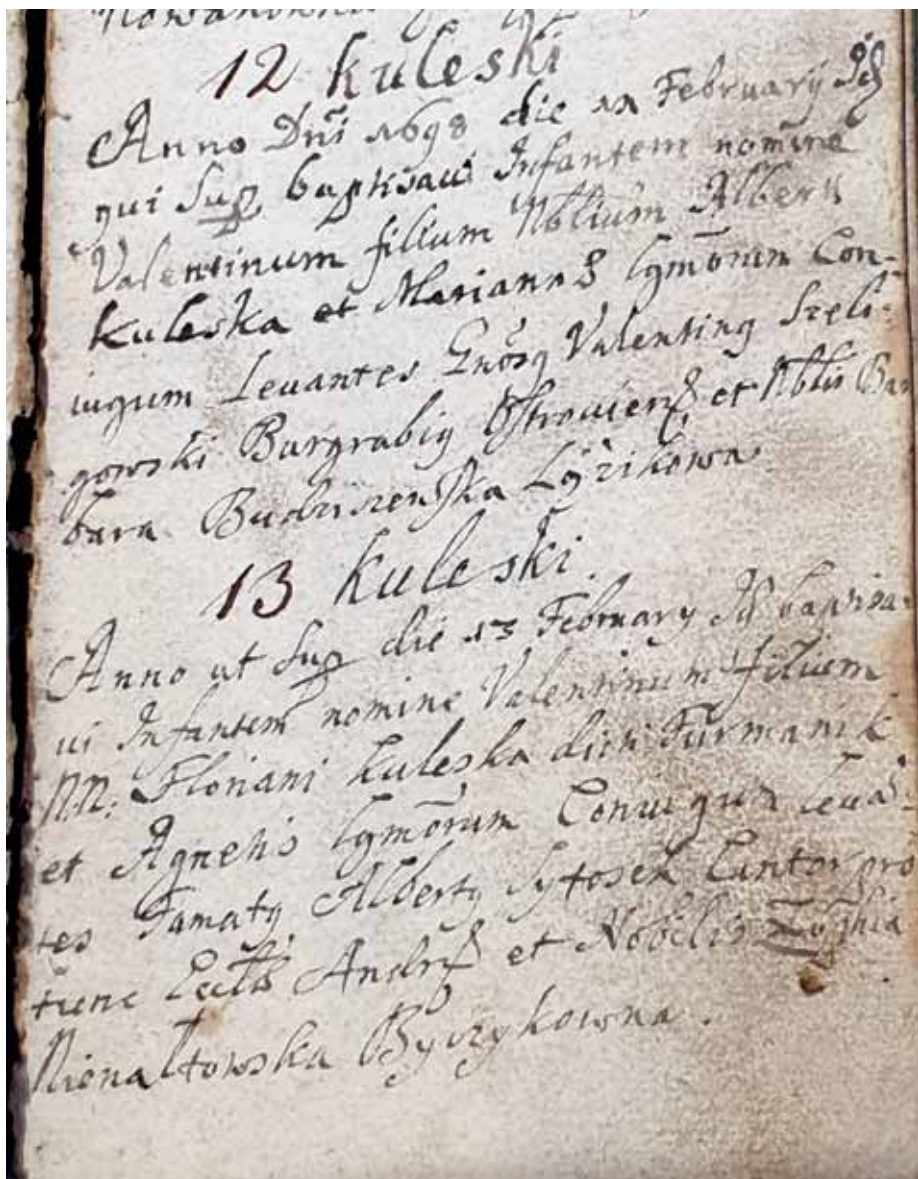 12 Kuleski
Anno Dni 1698 die February Ide
qui Sup baptisavi Infantem nomine
Valentinum filium Nbtium Alberti
Kuleska et Marianna lgmorum Con-
iugum Levantes Gnosg Valenting Szeli-
gowski Burgrabig Ostrovien et Nbtis Bar
bara Lyzikowa
13 Kuleski
Anno ut Sup die 13 February Id baptisa-
ui Infantem nomine Valentinum filium
N.N: Floriani Kuleska dicti Furmanik
et Agnetis lgmorum Coniugum leva-
tes Famatg Albertg Sytosek Cantor pro
tunc Eccl Andr et Nobilis Zophia
Nienaltowska Byczykowna.